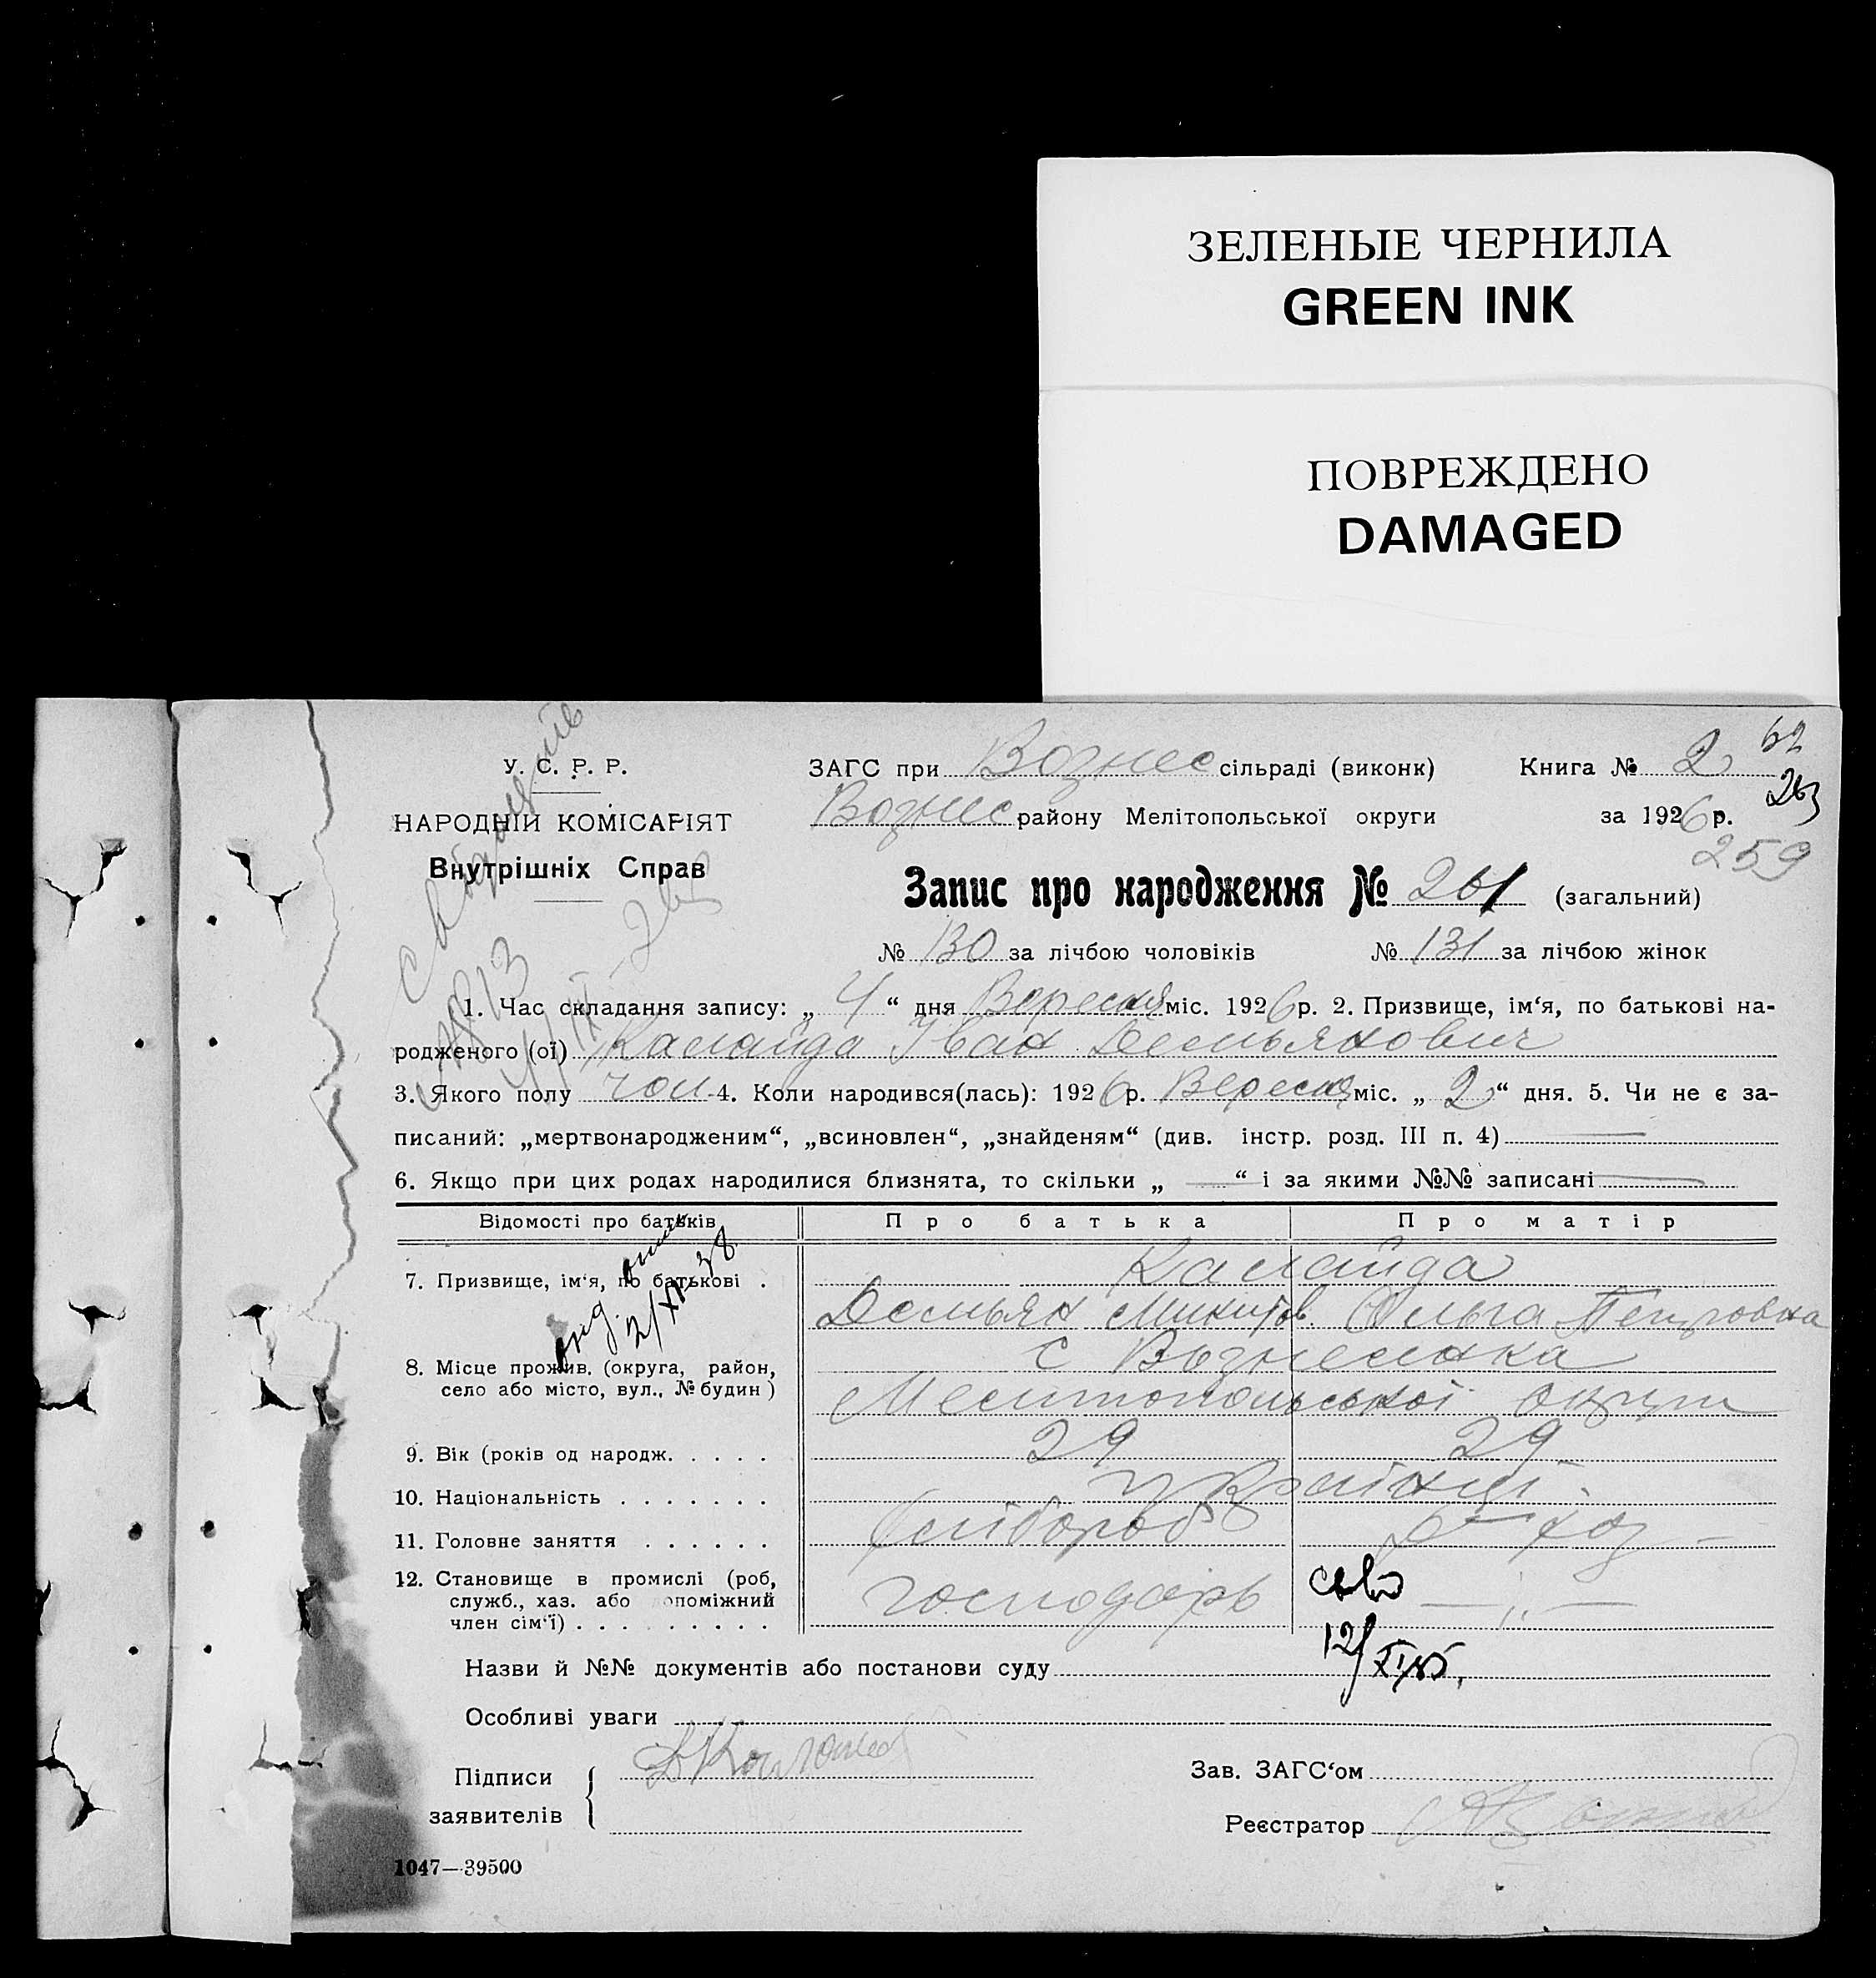 ЗЕЛЕНЫЕ ЧЕРНИЛА
GREEN INK
ПОВРЕЖДЕНО
DAMAGED
У. С. Р. Р.
НАРОДНІЙ КОМІСАРІЯТ
Внутрішніх Справ
ЗАГС при Вознес сільраді (виконк) Книга № 2
Вознес району Мелітопольської округи за 1926 р.
62
263
259
Запис про народження № 261 (загальний)
№ 130 за лічбою чоловіків № 131 за лічбою жінок
1. Час складання запису: „ 4 “ дня Вересня міс. 1926 р. 2. Призвище, ім‘я, по батькові на-
родженого (ої) Калайда Іван Демьянович
3. Якого полу чол 4. Коли народився(лась): 1926 р. Вересня міс. „ 2 “ дня. 5. Чи не є за-
писаний: „мертвонародженим“, „всиновлен“, „знайденям“ (див. інстр. розд. III п. 4) —
6. Якщо при цих родах народилися близнята, то скільки „ — “ і за якими №№ записані —
Відомості про батьків Про батька Про матір
7. Призвище, ім‘я, по батькові . Калайда
Демьян Микитов. Ольга Петровна
8. Місце прожив. (округа, район, с Вознесенка
село або місто, вул., № будин ) Мелитопольської округи
9. Вік (років од народж. . . . . 29 29
10. Національність . . . . . . . українці.
11. Головне заняття . . . . . . хлібороб
12. Становище в промислі (роб,
служб., хаз. або опоміжний господарь — „ —
член сім‘ї) . . . . . . . . .
12/XI 45.
Назви й №№ документів або постанови суду
Особливі уваги
Підписи
заявителів
Зав. ЗАГС‘ом
Реєстратор
1047—39500